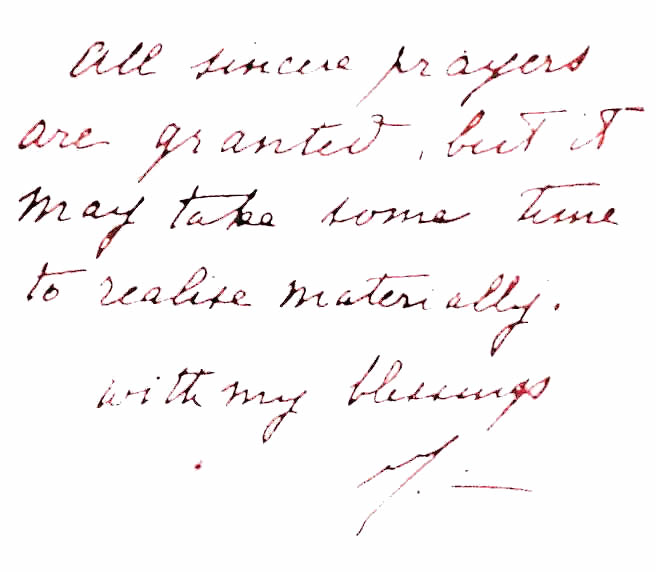 All sincere prayers
are granted, but it
may take some time
to realise materially.
with my blessings